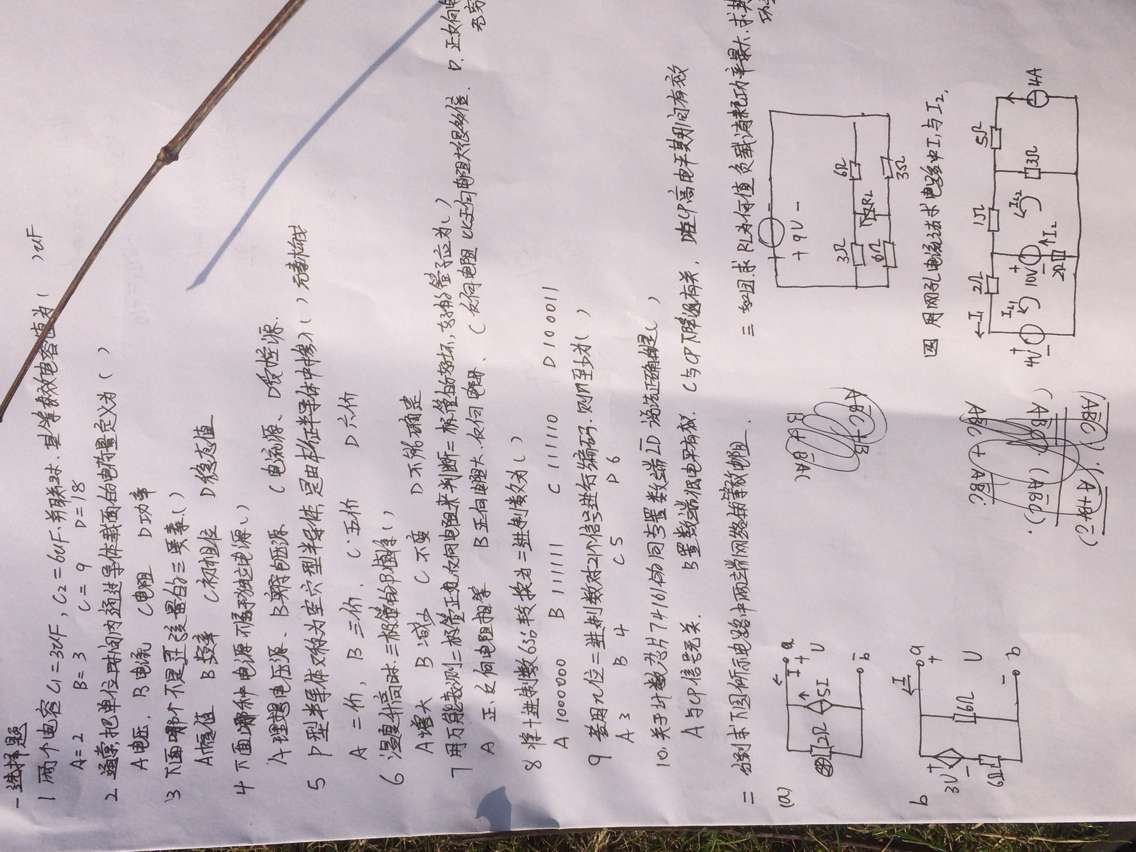 一 选择题
1 两个电容 C1=3uF, C2=6uF. 并联时. 其等效电容值为( )uF
A=2 B=3 C=9 D=18
2 通常,把单位时间内通过导体截面的电荷量定义为( )
A电压. B电流 C电阻 D功率
3 下面哪个不是正弦量的三要素( )
A幅值 B频率 C初相位 D稳态值
4 下面哪种电源不属于独立电源( )
A理想电压源、B实际电压源 C电流源、D受控源.
5 P型半导体又称为空穴型半导体,是由本征半导体中掺入( )元素构成
A 二价, B 三价. C 五价 D 六价
6 温度升高时.三极管的β值将( )
A增大 B减少 C不变 D不能确定
7 用万能表测二极管正负反向电阻来判断二极管的好坏,好的管子应为( )
A 正、反向电阻相等 B正向电阻大.反向电阻. C反向电阻比正向电阻大很多倍. D.正反向电
8 将十进制数63转换为二进制数为( )
A 1000000 B 111111 C 111110 D 100011
9 若用n位二进制数对21个信号进行编码.则n至少为( )
A 3 B 4 C 5 D 6
10.关于计数芯片74161的同步置数端LD 说法正确的是( )
A与CP信号无关. B置数端低电平有效. C与CP下降沿有关. D在CP高电平期间有效
二 分别求下图所示电路中两端网络的等效电阻.
三 如图.求RL为何值负载消耗功率最大.求其
(a)
I a
2Ω 5I + U - b
+ -
+ 9V -
3Ω 6Ω
RL
6Ω 3Ω
b
I a
3V + - 6Ω 6Ω + U - b
四 用网孔电流法求电路中I1与I2.
I1 2Ω 1Ω 5Ω
4V + - IL1 10V + - IL2 3Ω 4A
2Ω I2